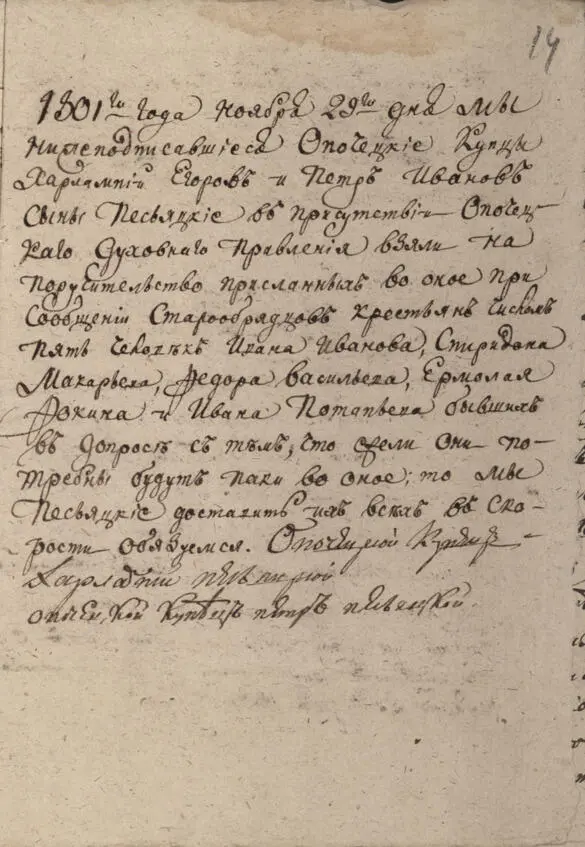 14
1801го года ноября 29го дня мы
нижеподписавшіеся Опочецкіе Купцы
Харлампій Егоровъ и Петръ Ивановъ
сыны Песьяцкіе въ присутствіи Опочец-
каго Духовнаго Правленія взяли на
поручительство присланныхъ во оное при
Сообщеніи Старообрядцовъ крестьянъ числомъ
пять человѣкъ Ивана Иванова, Спиридона
Макарьева, Федора Васильева, Ермолая
Фокина и Ивана Потапьева бывшихъ
въ допросѣ съ тѣмъ, что ежели они по-
требны будутъ паки во оное; то мы
Песьяцкіе доставить ихъ всѣхъ въ ско-
рости обязуемся. Опочецкой Купецъ
Харлампій песьяцкой
опочецкой купецъ петръ песьяцкой.